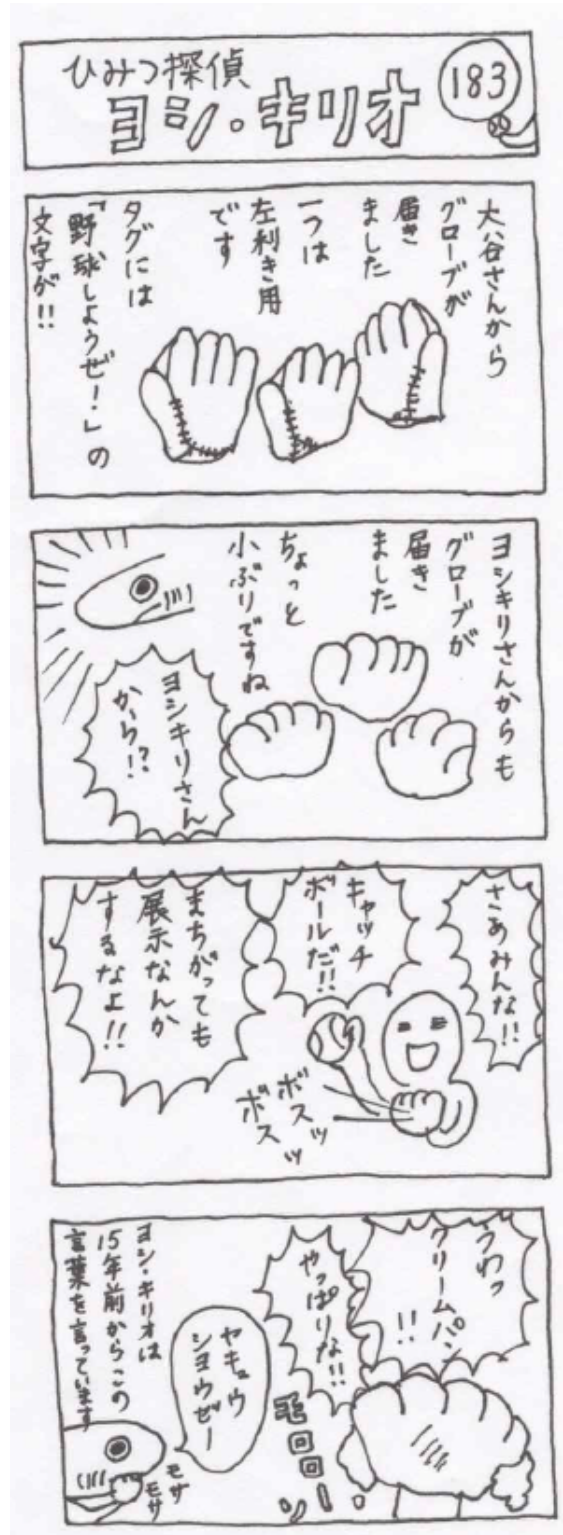 ひみつ探偵
ヨシ・キリオ
183
大谷さんから
グローブが
届き
ました
一つは
左利き用
です
タグには
「野球しようぜ!」の
文字が!!
ヨシキリさんからも
グローブが
届き
ました
ちょっと
小ぶりですね
ヨシキリさん
から!?
さあみんな!!
キャッチ
ボールだ!!
ボスッ
ボスッ
まちがっても
展示なんか
するなよ!!
うわっ
クリームパン
!!
やっぱりな!!
ヤキュウ
シヨウゼー
モサ
モサ
ヨシ・キリオは
15年前からこの
言葉を言っています